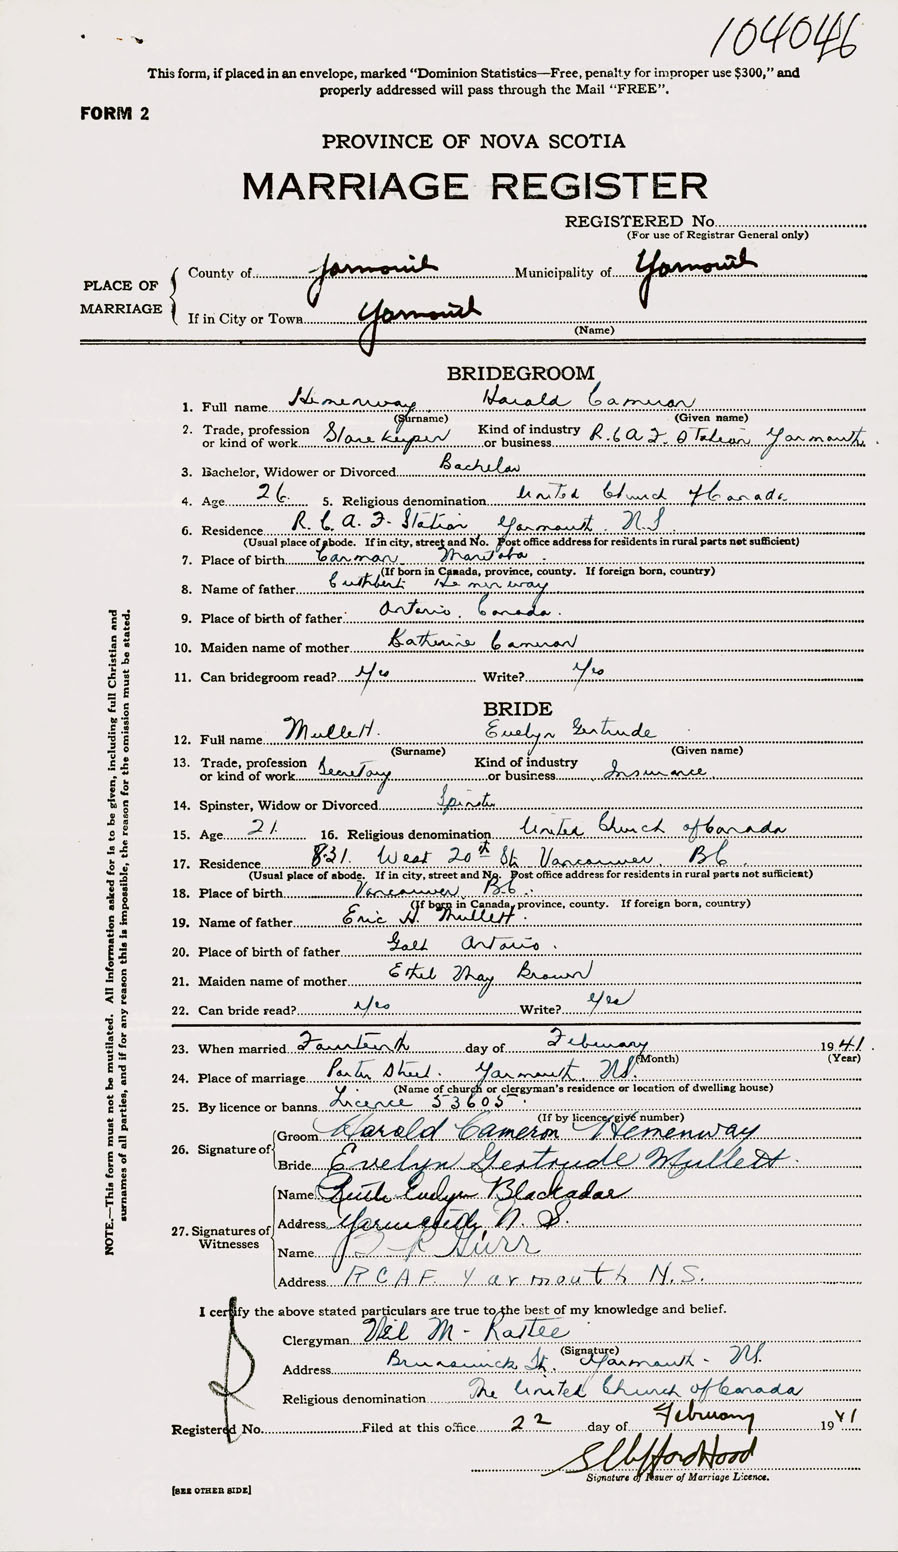 104046
This form, if placed in an envelope, marked "Dominion Statistics—Free, penalty for improper use $300," and
properly addressed will pass through the Mail "FREE".
FORM 2
PROVINCE OF NOVA SCOTIA
MARRIAGE REGISTER
REGISTERED No.
(For use of Registrar General only)
PLACE OF MARRIAGE
County of Yarmouth Municipality of Yarmouth
If in City or Town Yarmouth
(Name)
BRIDEGROOM
1. Full name Hemenway Harold Cameron
(Surname) (Given name)
2. Trade, profession or kind of work Storekeeper Kind of industry or business R.C.A.F. Station Yarmouth
3. Bachelor, Widower or Divorced Bachelor
4. Age 26 5. Religious denomination United Church of Canada
6. Residence R.C.A.F. Station Yarmouth N.S.
(Usual place of abode. If in city, street and No. Post office address for residents in rural parts not sufficient)
7. Place of birth Carman Manitoba
(If born in Canada, province, county. If foreign born, country)
8. Name of father Cuthbert Hemenway
9. Place of birth of father Ontario, Canada.
10. Maiden name of mother Katherine Cameron
11. Can bridegroom read? Yes Write? Yes
BRIDE
12. Full name Mullett. Evelyn Gertrude
(Surname) (Given name)
13. Trade, profession or kind of work Secretary Kind of industry or business Insurance
14. Spinster, Widow or Divorced Spinster
15. Age 21 16. Religious denomination United Church of Canada
17. Residence 831 West 20th St. Vancouver. BC
(Usual place of abode. If in city, street and No. Post office address for residents in rural parts not sufficient)
18. Place of birth Vancouver B.C.
(If born in Canada, province, county. If foreign born, country)
19. Name of father Eric H. Mullett.
20. Place of birth of father Galt Ontario.
21. Maiden name of mother Ethel May Brown
22. Can bride read? Yes Write? Yes
23. When married Fourteenth day of February 1941.
(Month) (Year)
24. Place of marriage Porter Street. Yarmouth, N.S.
(Name of church or clergyman's residence or location of dwelling house)
25. By licence or banns Licence 53605
(If by licence give number)
26. Signature of
Groom Harold Cameron Hemenway
Bride Evelyn Gertrude Mullett.
27. Signatures of Witnesses
Name Ruth Evelyn Blackadar
Address Yarmouth N.S.
Name Gurr
Address RCAF Yarmouth N.S.
I certify the above stated particulars are true to the best of my knowledge and belief.
Clergyman
(Signature)
Address Brunswick St. Yarmouth - NS.
Religious denomination The United Church of Canada
Registered No. Filed at this office 22 day of February 1941
Signature of Issuer of Marriage Licence.
[SEE OTHER SIDE]
NOTE.—This form must not be mutilated. All information asked for is to be given, including full Christian and
surnames of all parties, and if for any reason this is impossible, the reason for the omission must be stated.